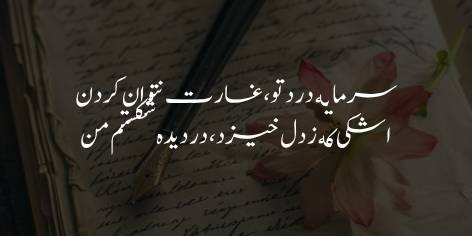 سرمایه درد تو، غارت نتوان کردن
اشکی که ز دل خیزد، در دیده شکستم من